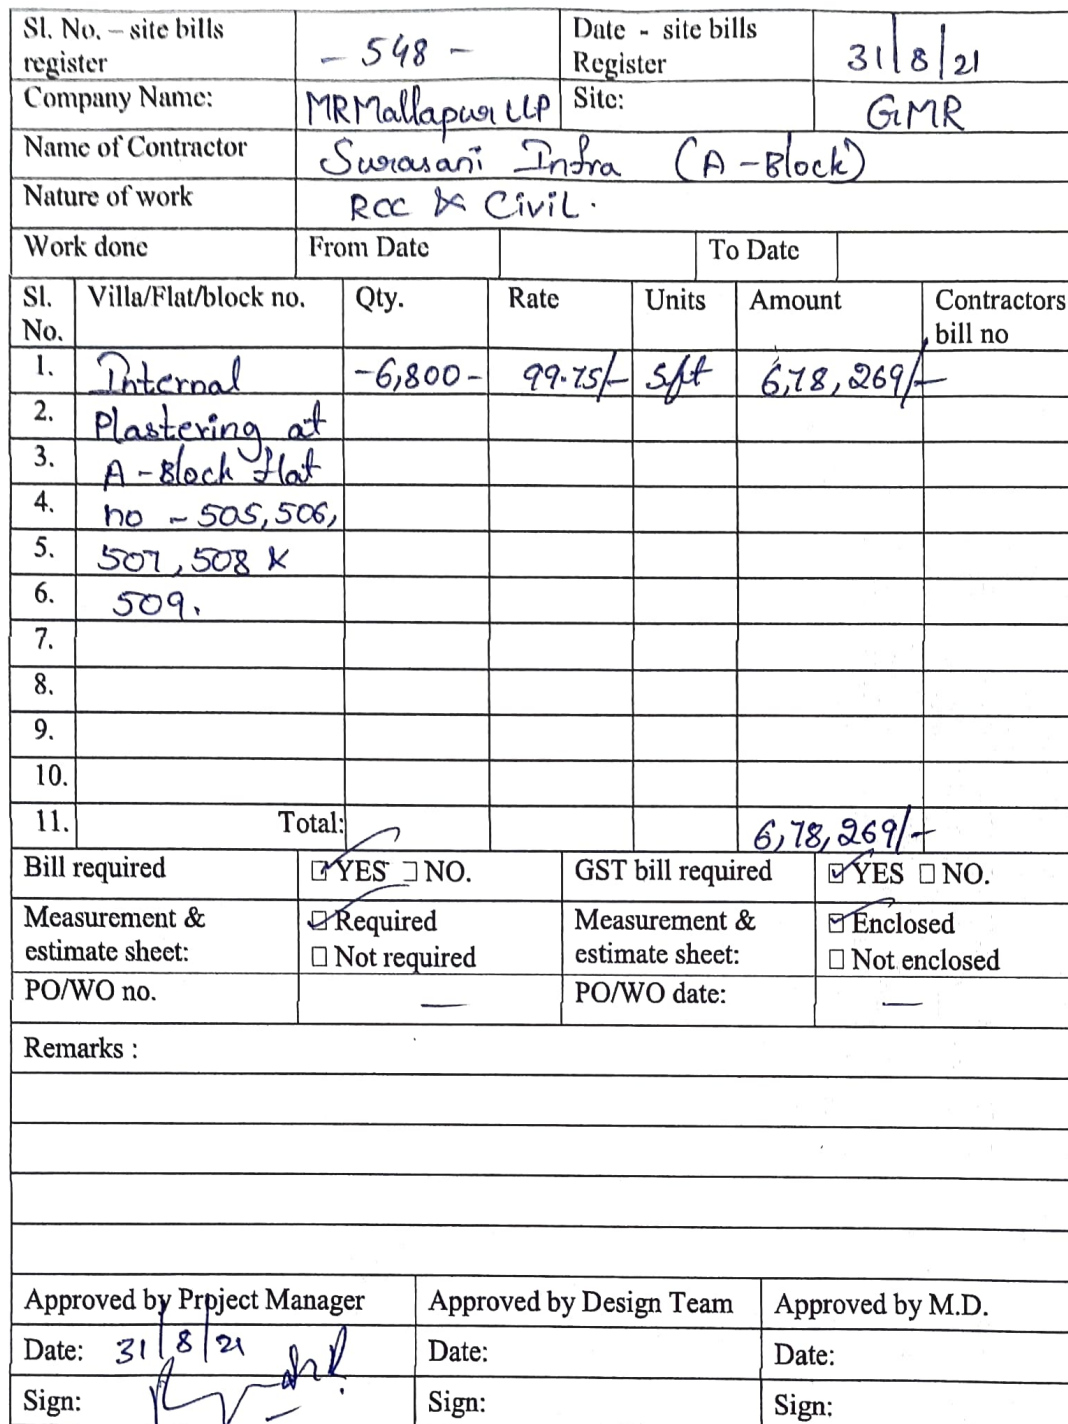 Sl. No. – site bills register - 548 - Date - site bills Register 31/8/21
Company Name: MRMallapur LLP Site: GMR
Name of Contractor Surasani Infra (A-Block)
Nature of work RCC & Civil.
Work done From Date To Date
Sl. No. Villa/Flat/block no. Qty. Rate Units Amount Contractors bill no
1. Internal -6,800- 99.75/- Sft 6,78,269/-
2. Plastering at
3. A-Block flat
4. no - 505, 506,
5. 507, 508 &
6. 509.
7.
8.
9.
10.
11. Total: 6,78,269/-
Bill required YES NO. GST bill required YES NO.
Measurement & estimate sheet: Required Not required Measurement & estimate sheet: Enclosed Not enclosed
PO/WO no. — PO/WO date: —
Remarks :
Approved by Project Manager Approved by Design Team Approved by M.D.
Date: 31/8/21 Date: Date:
Sign: Sign: Sign: